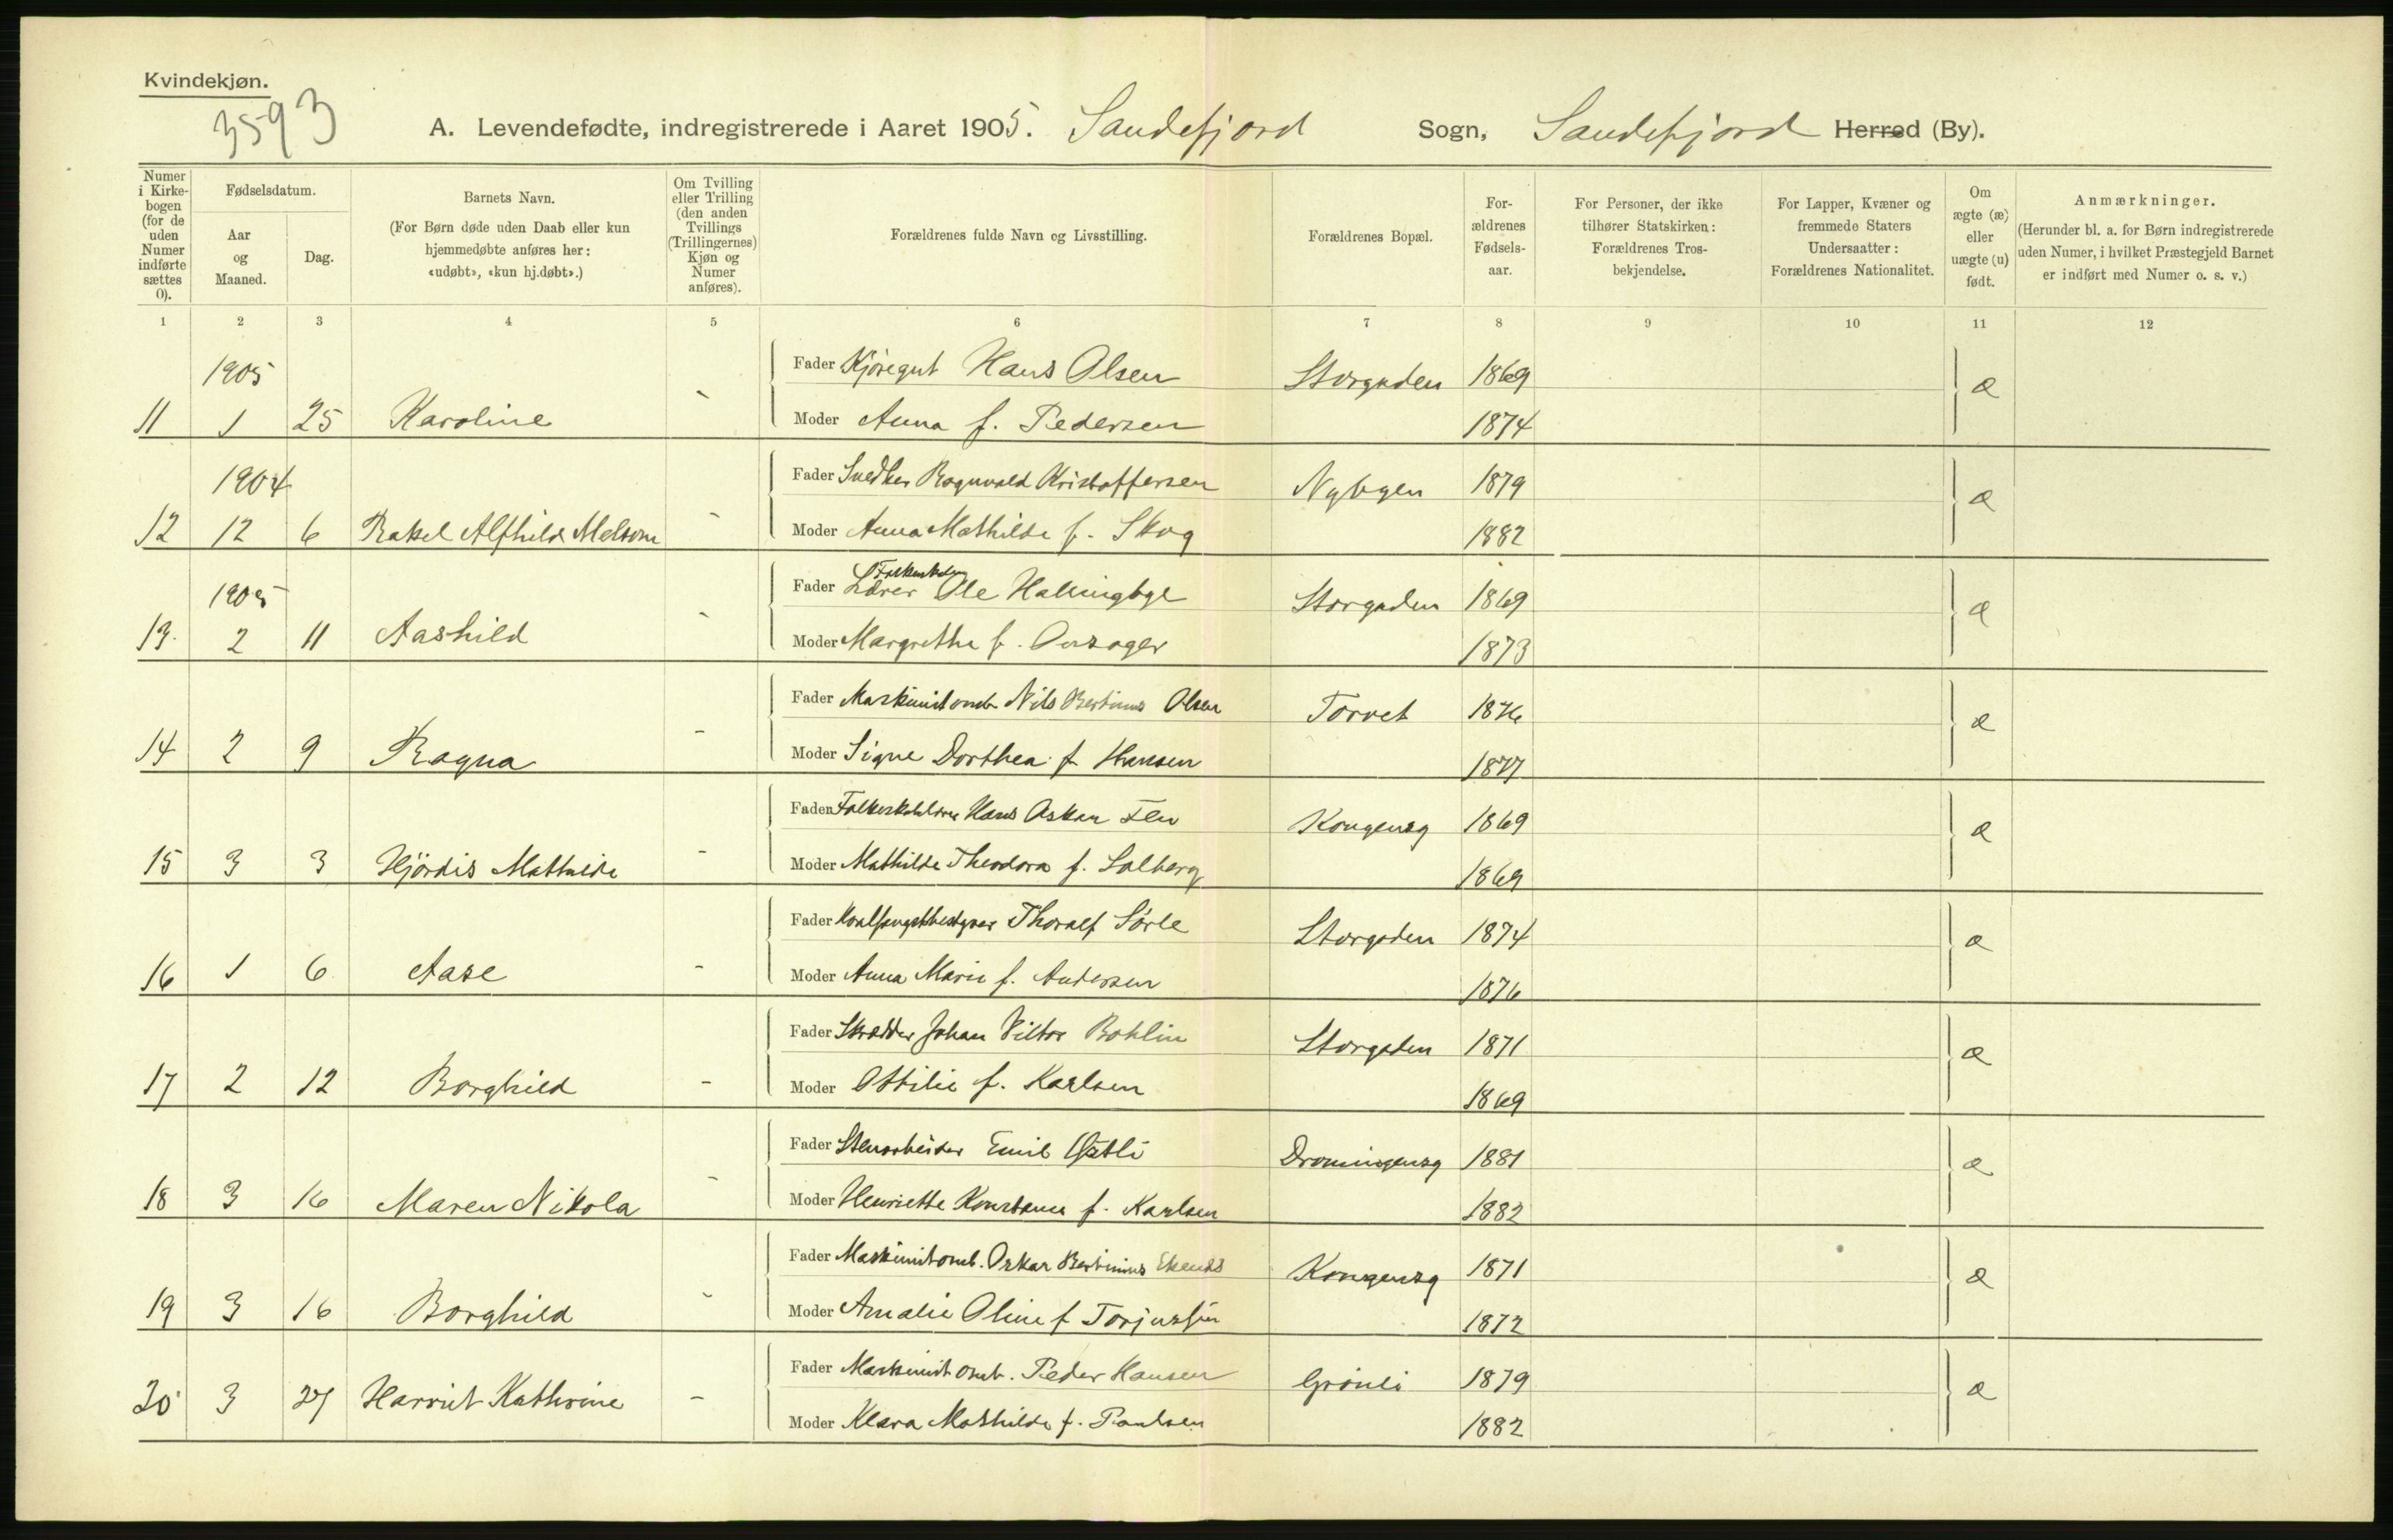 Kvindekjøn.
3593
A. Levendefødte, indregistrerede i Aaret 1905. Sandefjord Sogn, Sandefjord Herred (By).
Numer i Kirkebogen (for de uden Numer indførte sættes 0).
Fødselsdatum.
Aar og Maaned.
Dag.
Barnets Navn.
(For Børn døde uden Daab eller kun hjemmedøbte anføres her: «udøbt», «kun hj.døbt».)
Om Tvilling eller Trilling (den anden Tvillings (Trillingernes) Kjøn og Numer anføres).
Forældrenes fulde Navn og Livsstilling.
Forældrenes Bopæl.
For-ældrenes Fødsels-aar.
For Personer, der ikke tilhører Statskirken: Forældrenes Tros-bekjendelse.
For Lapper, Kvæner og fremmede Staters Undersaatter: Forældrenes Nationalitet.
Om ægte (æ) eller uægte (u) født.
Anmærkninger.
(Herunder bl. a. for Børn indregistrerede uden Numer, i hvilket Præstegjeld Barnet er indført med Numer o. s. v.)
1 2 3 4 5 6 7 8 9 10 11 12
1905 Fader Kjøregut Hans Olsen Storgaden 1869 æ
11 1 25 Karoline - Moder Anna f. Pedersen 1874
1904 Fader Snedker Ragnvald Kristoffersen Nybyen 1879 æ
12 12 6 Rakel Alfhild Melsom - Moder Anna Mathilde f. Skog 1882
1905 Fader Folkeskole Lærer Ole Hallingbye Storgaden 1869 æ
13. 2 11 Aashild - Moder Margrethe f. Onsager 1873
Fader Maskinist omb. Nils Bertinius Olsen Torvet 1876 æ
14 2 9 Ragna - Moder Signe Dorthea f. Hansen 1877
Fader Folkeskolelærer Hans Oskar Fen Kongensg 1869 æ
15 3 3 Hjördis Mathilde - Moder Mathilde Theodora f. Solberg 1869
Fader Hvalfangstbestyrer Thoralf Sørle Storgaden 1874 æ
16 1 6 Aase - Moder Anna Marie f. Andersen 1876
Fader Skrædder Johan Viktor Bohlin Storgaden 1871 æ
17 2 12 Borghild - Moder Ottilie f. Karlsen 1869
Fader Stenarbeider Emil Østli Dronningensg 1881 æ
18 3 16 Maren Nikola - Moder Henriette Konstance f. Karlsen 1882
Fader Maskinist omb. Oskar Bertinius Kongensg 1871 æ
19 3 16 Borghild - Moder Amalie Oline f Torjussen 1872
Fader Maskinist omb. Peder Hansen Grönli 1879 æ
20 3 27 Harriet Kathrine - Moder Klara Mathilde f. Paulsen 1882